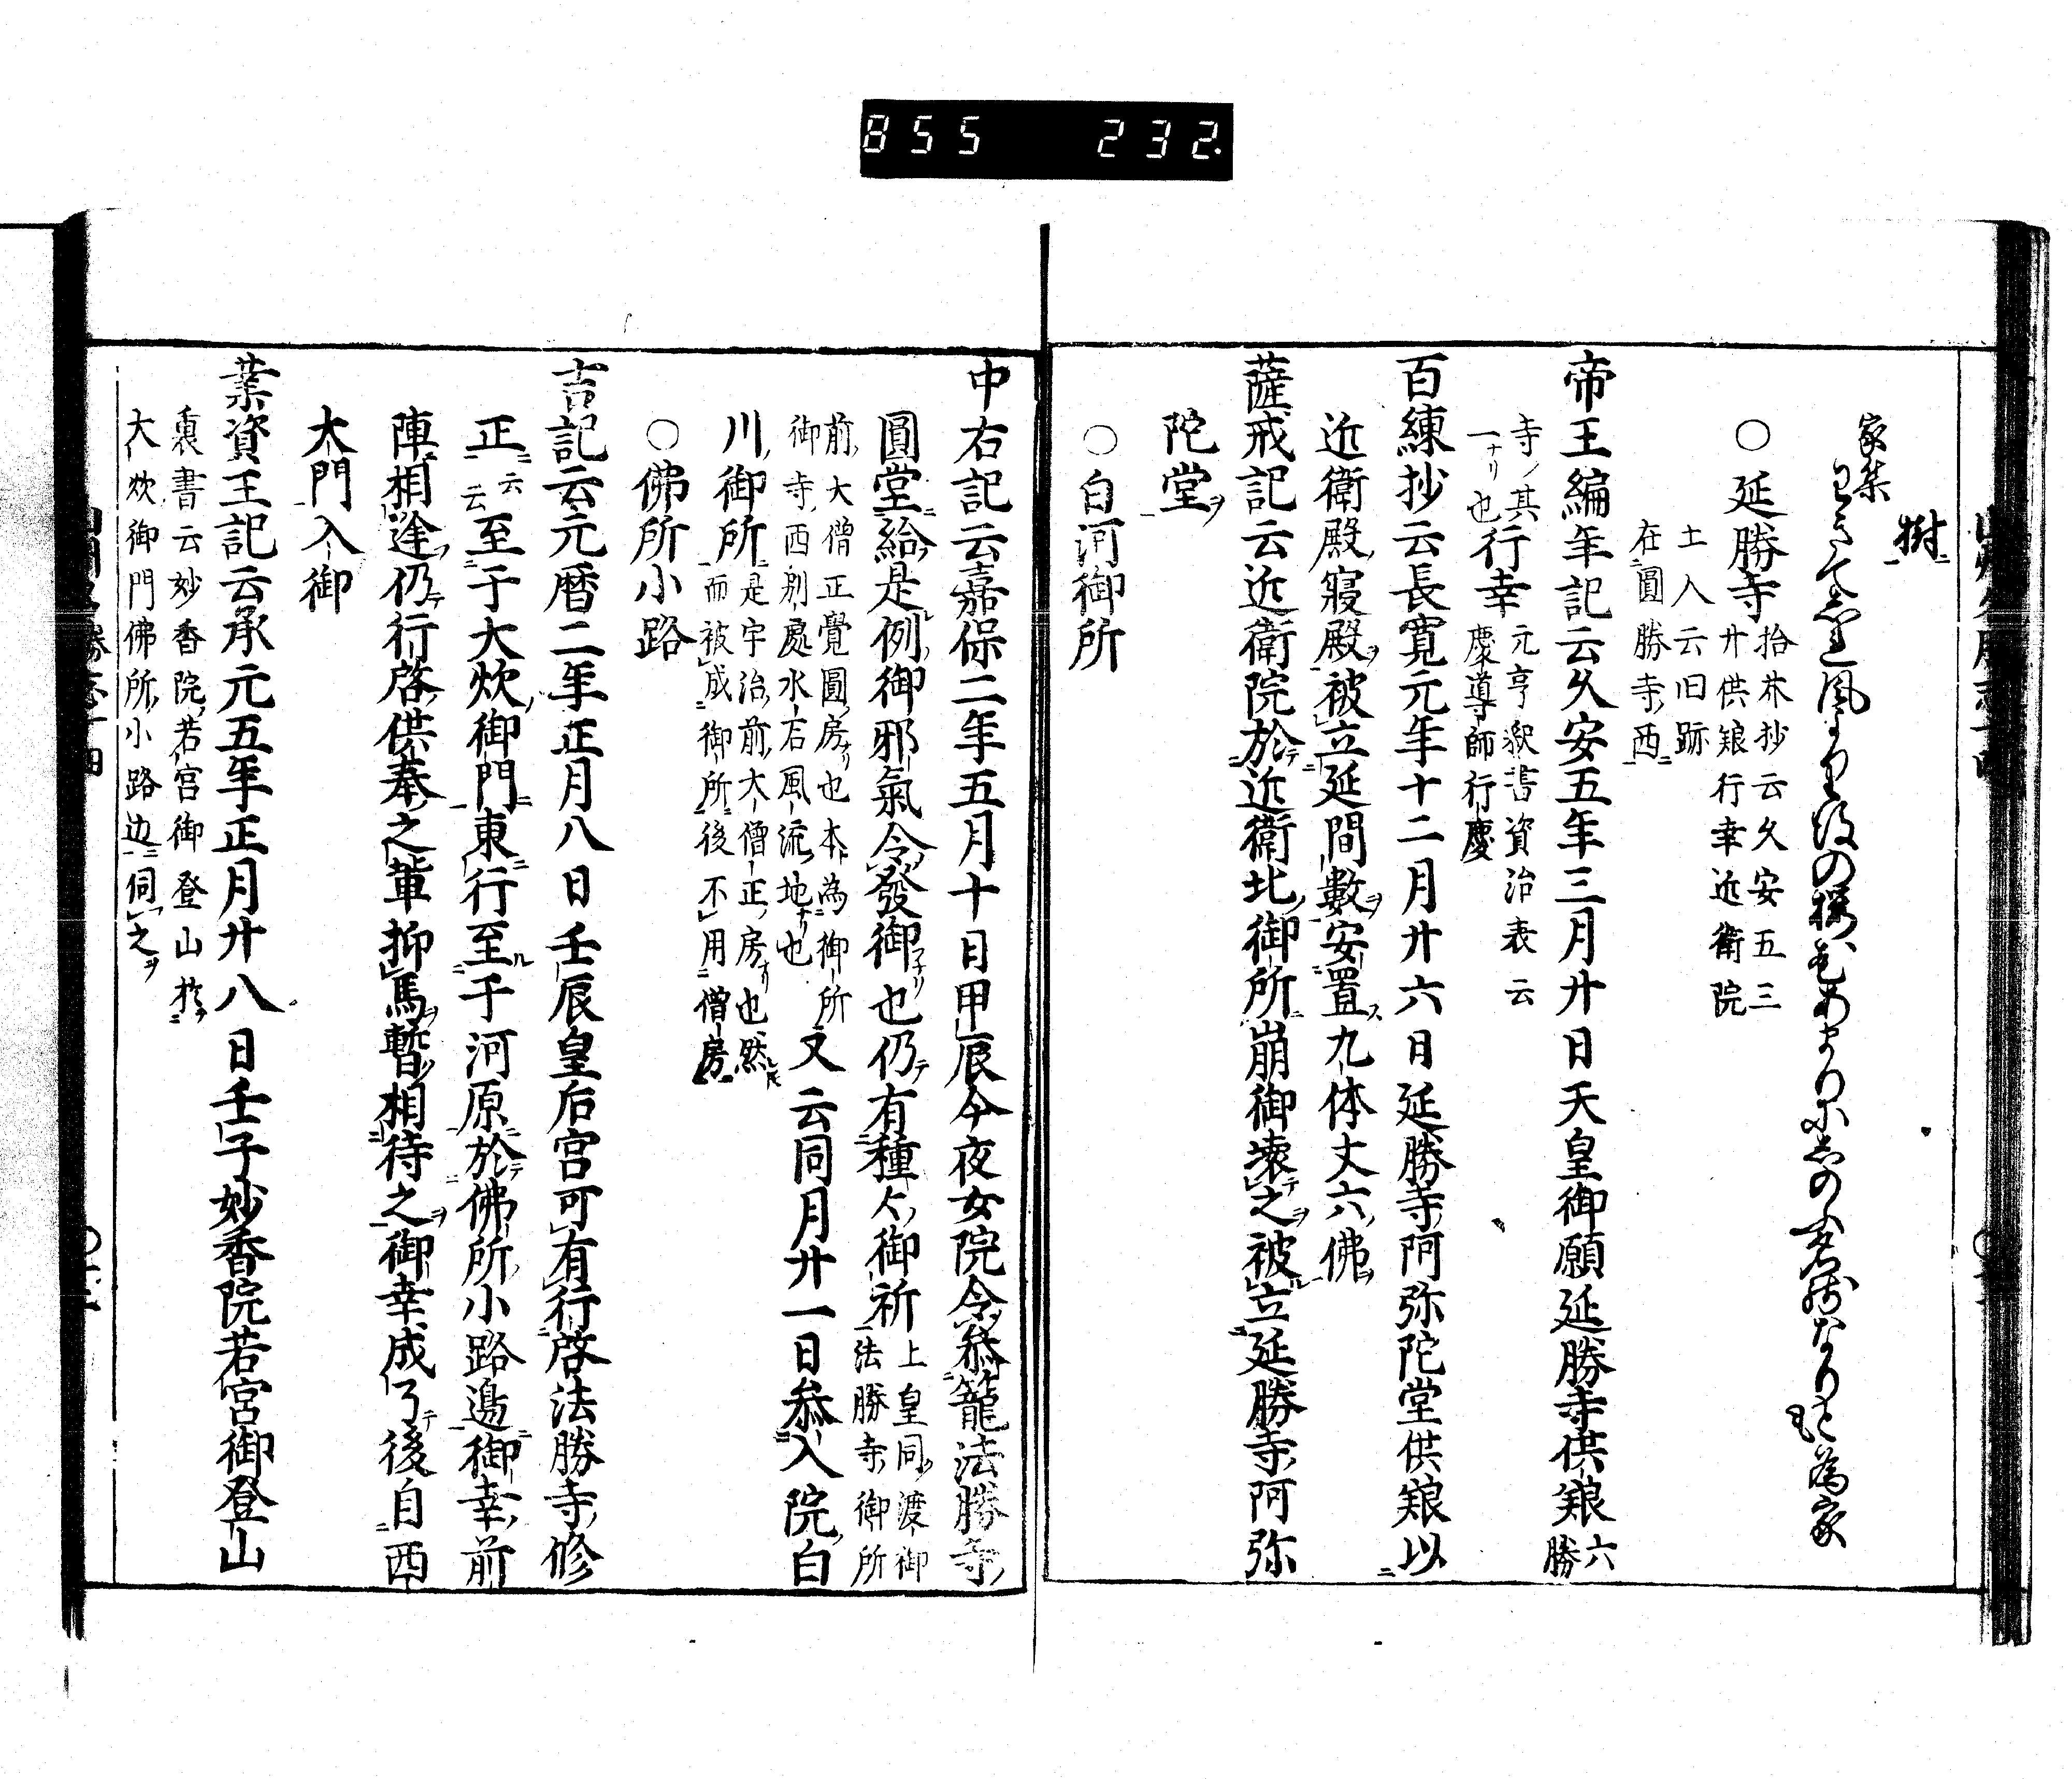 855 232
樹
家集
風 の 為家
○延勝寺 拾芥抄云久安五三
廿供粮行幸近衛院
土人云旧跡
在圓勝寺西
帝王編年記云久安五年三月廿日天皇御願延勝寺供粮 六
勝
寺ノ其
一ナリ也 行幸 元亨釈書資治表云
慶導師行慶
百練抄云長寛元年十二月廿六日延勝寺阿弥陀堂供粮以
近衛殿寝殿被立延間數安置九体丈六佛
薩戒記云近衛院於近衛北御所崩御壊之被立延勝寺阿弥
陀堂
○白河御所
中右記云嘉保二年五月十日甲辰今夜女院令叅籠法勝寺
圓堂給是例御邪氣令發御也仍有種〻御祈 上皇同渡御
法勝寺御所
前大僧正覺圓房ナリ也本為御所
御寺西別處水石風流地ナリ也 又云同月廿一日叅入院白
川御所 是宇治前大僧正房ナリ也然
而被成御所後不用僧房
○佛所小路
吉記云元暦二年正月八日壬辰皇后宮可有行啓法勝寺修
正云云至于大炊御門東行至于河原於佛所小路邉御幸前
陣相逢仍行啓供奉之輩抑馬暫相待之御幸成了後自西
大門入御
業資王記云承元五年正月廿八日壬子妙香院若宮御登山
裏書云妙香院若宮御登山於
大炊御門佛所小路边伺之